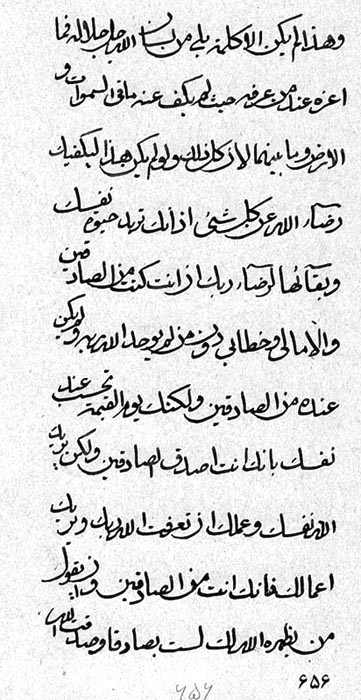 وهذا لم يكن الا كلمة بلى من لسان الله جل جلاله فما
اعزه عند من عرفه حيث لم يكف عنه ما فى السموات و
الارض وما بينهما لان كل ذلك ولو لم يكن هذا ليكفيك
رضاء الله عن كل شئ اذ انك تريد حيوة نفسك
وبقائها لرضاء ربك ان انت كنت من الصادقين
والا مالى وخطابى دون من لم يوحد الله ربه ولم يكن
عنده من الصادقين ولكنك يوم القيمة تحسب عند
نفسك بانك انت اصدق الصادقين ولكن يريك
الله نفسك وعملك ان تعرفت الله ربك وتريك
اعمالك فانك انت من الصادقين وان يقول
من يظهره الله لك لست بصادق وصدقت الله
۶۵۶
۶۵۶